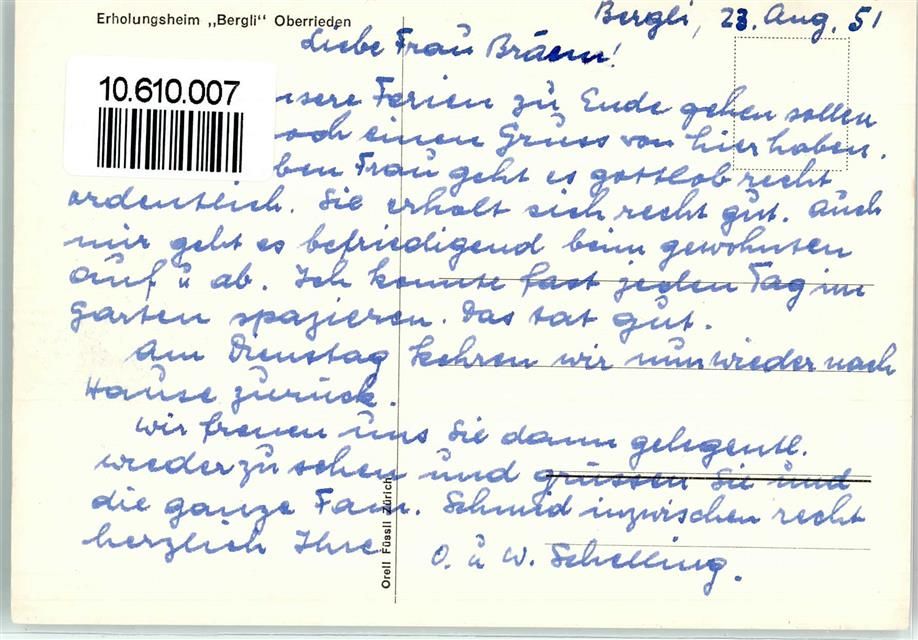 Erholungsheim „Bergli“ Oberrieden
Bergli, 23. Aug. 51
Liebe Frau Bräem!
10.610.007
nsere Ferien zu Ende gehen sollen
och einen Gruss von hier haben.
ben Frau geht es gottlob recht
ordentlich. Sie erholt sich recht gut. Auch
mir geht es befriedigend beim gewohnten
auf u ab. Ich konnte fast jeden Tag im
Garten spazieren. Das tat gut.
Am Dienstag kehren wir nun wieder nach
Hause zurück.
Wir freuen uns Sie dann gelegentl.
wieder zu sehen und grüssen Sie und
die ganze Fam. Schmid inzwischen recht
herzlich Ihre
O. u W. Schelling.
Orell Füssli Zürich